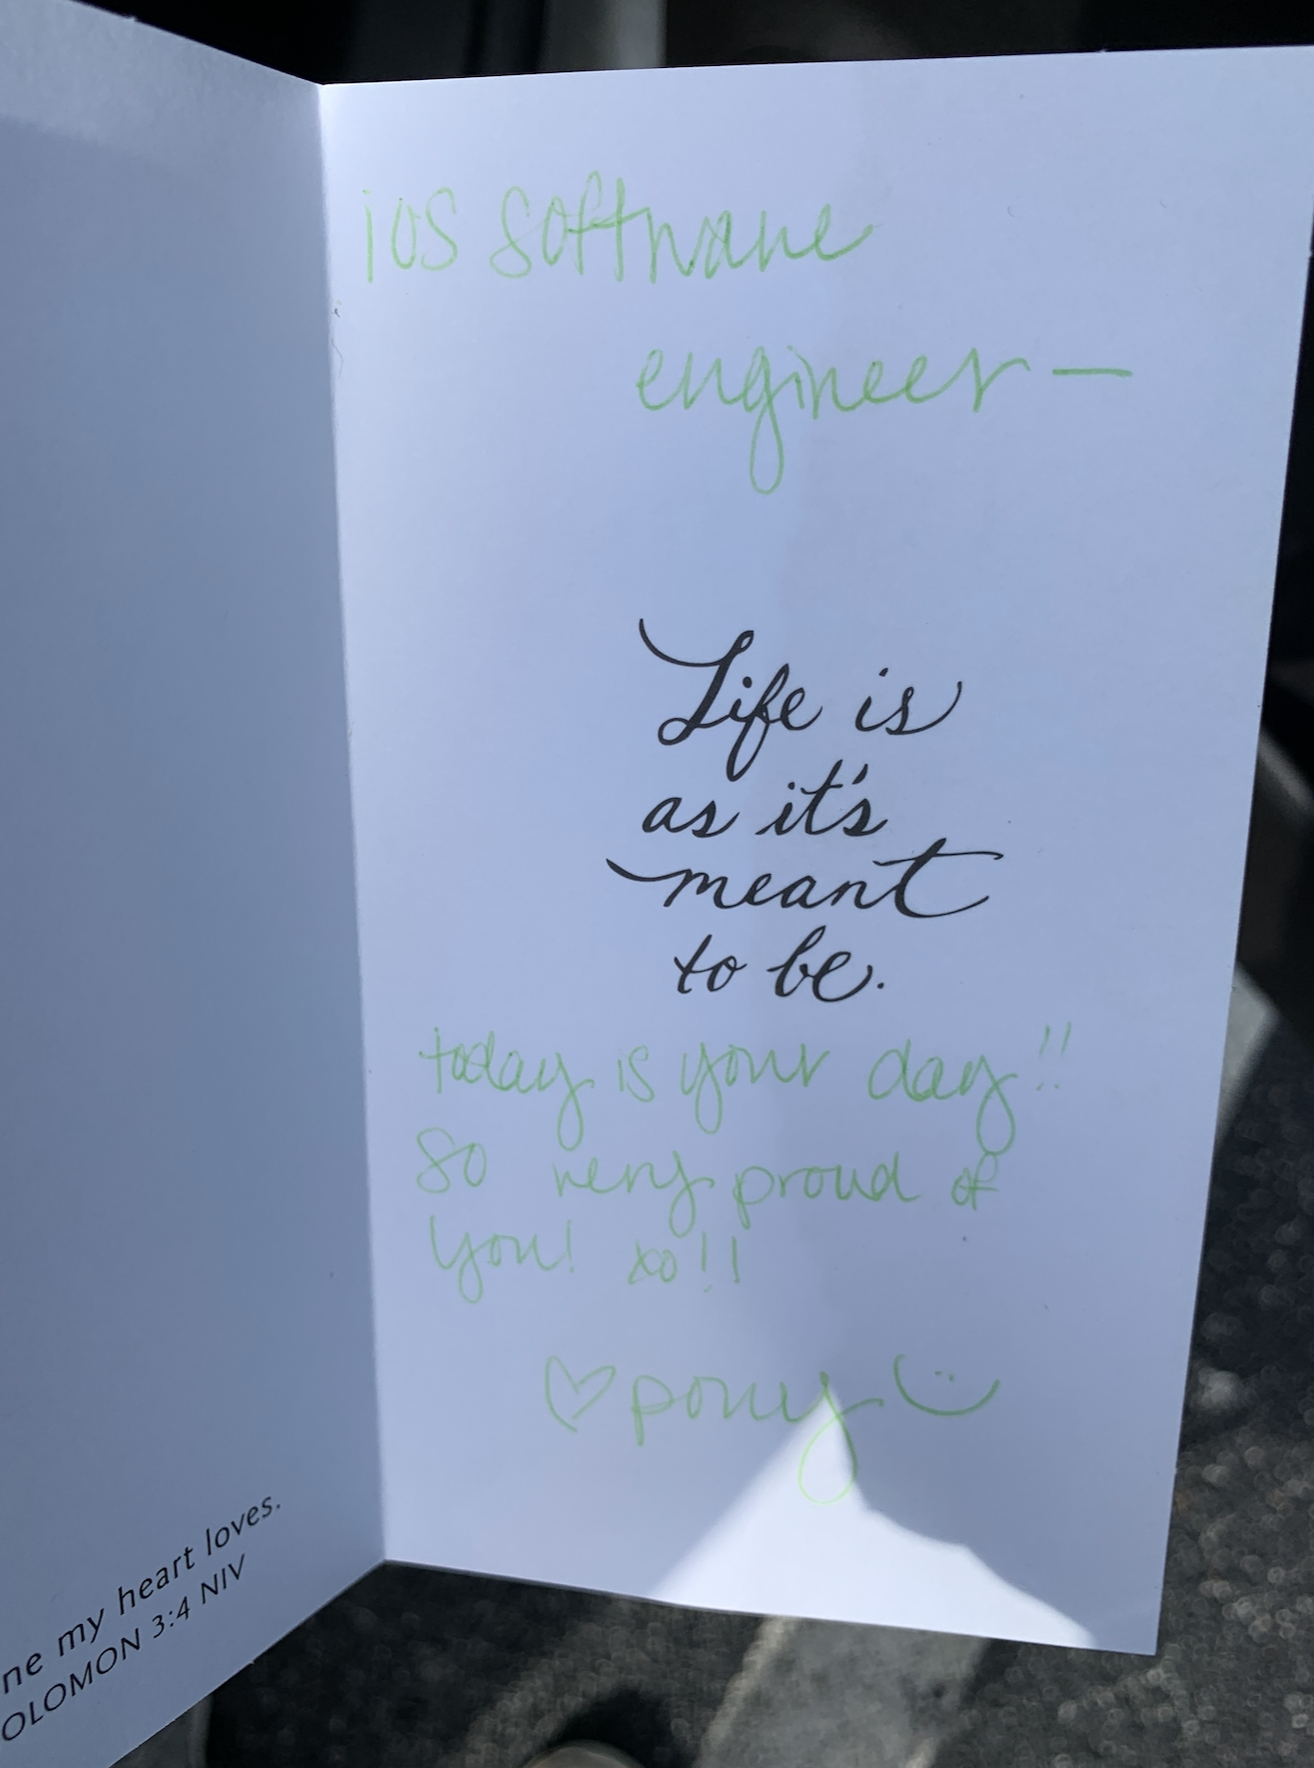 ne my heart loves.
OLOMON 3:4 NIV
ios software
engineer —
Life is
as it's
meant
to be.
today is your day!!
So very proud of
you! xo!!
♡ pony